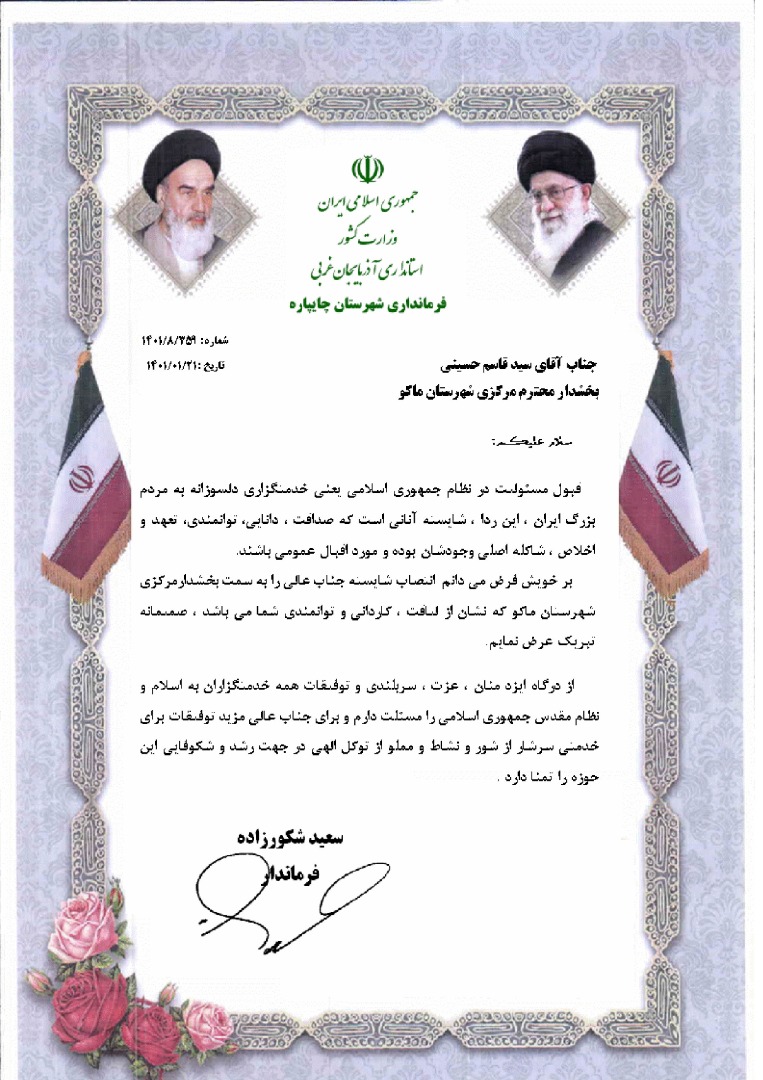 جمهوری اسلامی ایران
وزارت کشور
استانداری آذربایجان غربی
فرمانداری شهرستان چایپاره
شماره: ۱۴۰۱/۸/۳۵۹
تاریخ :۱۴۰۱/۰۱/۲۱
جناب آقای سید قاسم حسینی
بخشدار محترم مرکزی شهرستان ماکو
سلام علیکم:
قبول مسئولیت در نظام جمهوری اسلامی یعنی خدمتگزاری دلسوزانه به مردم
بزرگ ایران ، این ردا ، شایسته آنانی است که صداقت ، دانایی، توانمندی، تعهد و
اخلاص ، شاکله اصلی وجودشان بوده و مورد اقبال عمومی باشند.
بر خویش فرض می دانم انتصاب شایسته جناب عالی را به سمت بخشدارمرکزی
شهرستان ماکو که نشان از لیاقت ، کاردانی و توانمندی شما می باشد ، صمیمانه
تبریک عرض نمایم.
از درگاه ایزد منان ، عزت ، سربلندی و توفیقات همه خدمتگزاران به اسلام و
نظام مقدس جمهوری اسلامی را مسئلت دارم و برای جناب عالی مزید توفیقات برای
خدمتی سرشار از شور و نشاط و مملو از توکل الهی در جهت رشد و شکوفایی این
حوزه را تمنا دارد .
سعید شکورزاده
فرماندار